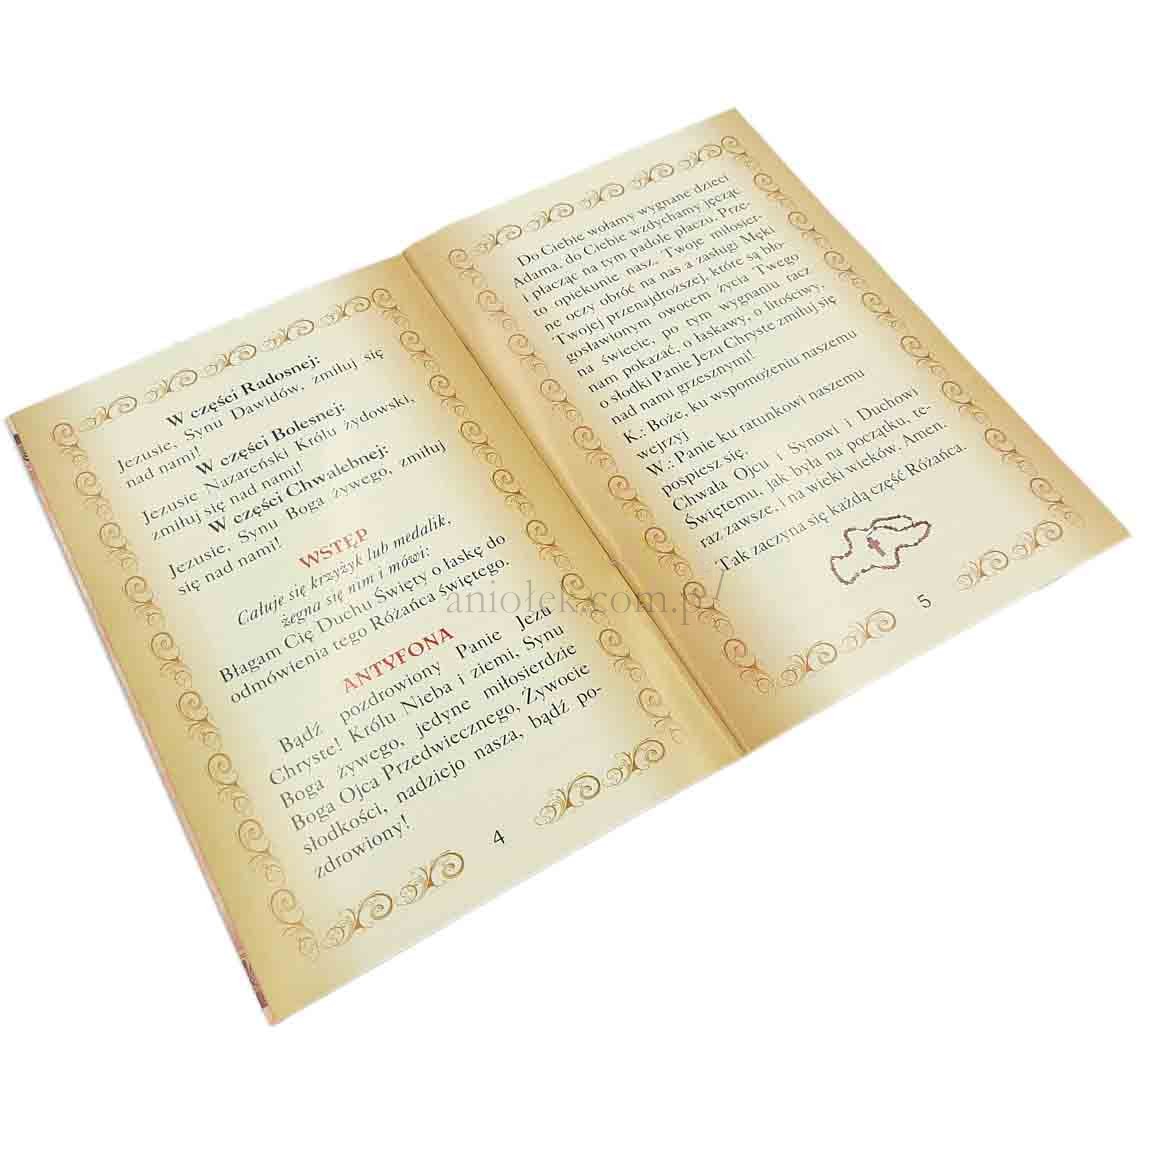 W części Radosnej:
Jezusie, Synu Dawidów, zmiłuj się
nad nami!
W części Bolesnej:
Jezusie Nazareński Królu żydowski,
zmiłuj się nad nami!
W części Chwalebnej:
Jezusie, Synu Boga żywego, zmiłuj
się nad nami!
WSTĘP
Całuje się krzyżyk lub medalik,
żegna się nim i mówi:
Błagam Cię Duchu Święty o łaskę do
odmówienia tego Różańca świętego.
ANTYFONA
Bądź pozdrowiony Panie Jezu
Chryste! Królu Nieba i ziemi, Synu
Boga żywego, jedyne miłosierdzie
Boga Ojca Przedwiecznego, Żywocie
słodkości, nadziejo nasza, bądź po-
zdrowiony!
4
Do Ciebie wołamy wygnane dzieci
Adama, do Ciebie wzdychamy jęcząc
i płacząc na tym padole płaczu. Prze-
to opiekunie nasz, Twoje miłosier-
ne oczy obróć na nas a zasługi Męki
Twojej przenajdroższej, które są bło-
gosławionym owocem życia Twego
na świecie, po tym wygnaniu racz
nam pokazać, o łaskawy, o litościwy,
o słodki Panie Jezu Chryste zmiłuj się
nad nami grzesznymi!
K.: Boże, ku wspomożeniu naszemu
wejrzyj
W.: Panie ku ratunkowi naszemu
pospiesz się.
Chwała Ojcu i Synowi i Duchowi
Świętemu, jak była na początku, te-
raz zawsze, i na wieki wieków. Amen.
Tak zaczyna się każdą część Różańca.
5
aniołek.com.pl